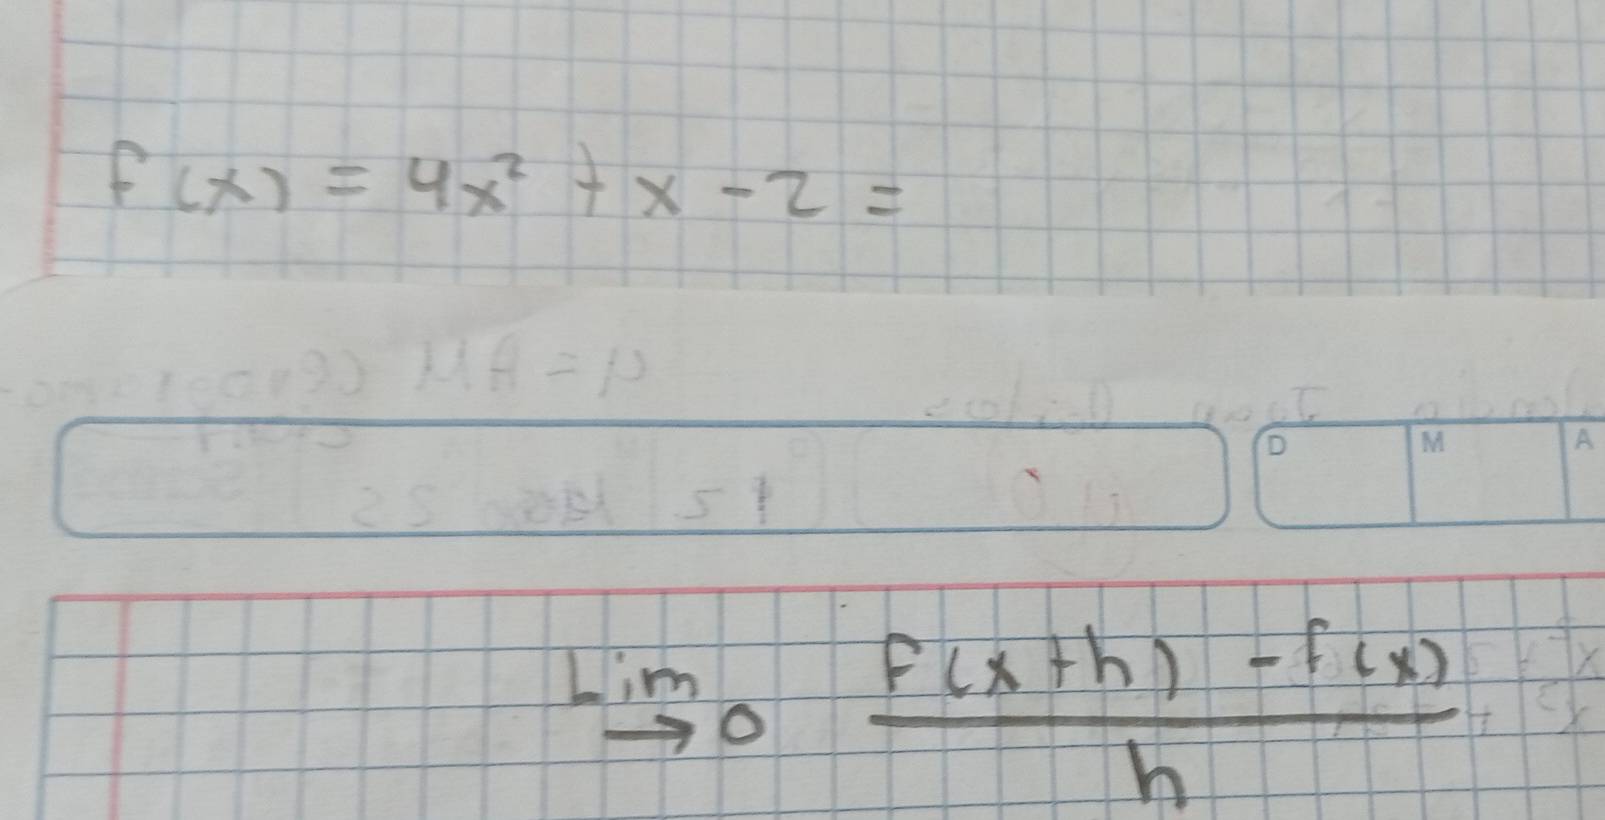 f(x) = 4x² + x - 2 =
D M A
Lim f(x+h) - f(x)
→ 0 h